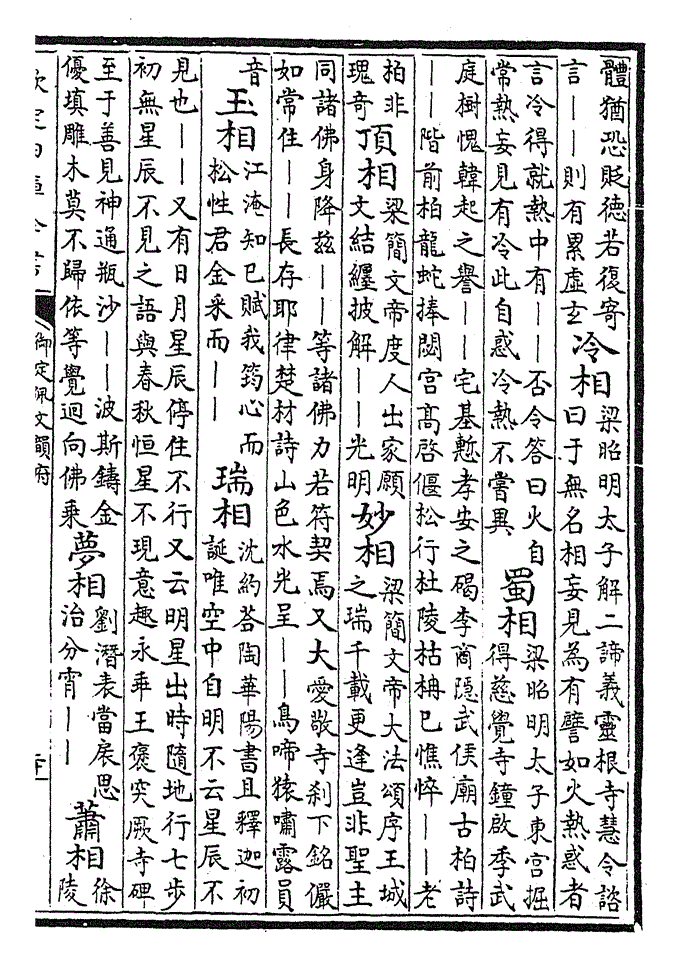 體猶恐貶德若復寄
言——則有累虛玄
冷相
梁昭明太子解二諦義靈根寺慧令諮
曰于無名相妄見為有譬如火熱惑者
言冷得就熱中有——否令答曰火自
常熱妄見有冷此自惑冷熱不嘗異
蜀相
梁昭明太子東宮掘
得慈覺寺鐘啟季武
庭樹愧韓起之譽——宅基慙孝安之碣李商隱武侯廟古柏詩
——階前柏龍蛇捧閟宮髙啓偃松行杜陵枯柟已憔悴——老
柏非
瑰奇
頂相
梁簡文帝度人出家願
文結纒披解——光明
妙相
梁簡文帝大法頌序王城
之瑞千載更逢豈非聖主
同諸佛身降兹——等諸佛力若符契焉又大愛敬寺刹下銘儼
如常住——長存耶律楚材詩山色水光呈——鳥啼猿嘯露員
音
玉相
江淹知已賦我筠心而
松性君金采而——
瑞相
沈約荅陶華陽書且釋迦初
誕唯空中自明不云星辰不
見也——又有日月星辰停住不行又云明星出時隨地行七步
初無星辰不見之語與春秋恒星不現意趣永乖王褒突厥寺碑
至于善見神通瓶沙——波斯鑄金
優填雕木莫不歸依等覺迴向佛乗
夢相
劉潛表當扆思
治分宵——
蕭相
徐
陵
欽定四庫全書
御定佩文韻府